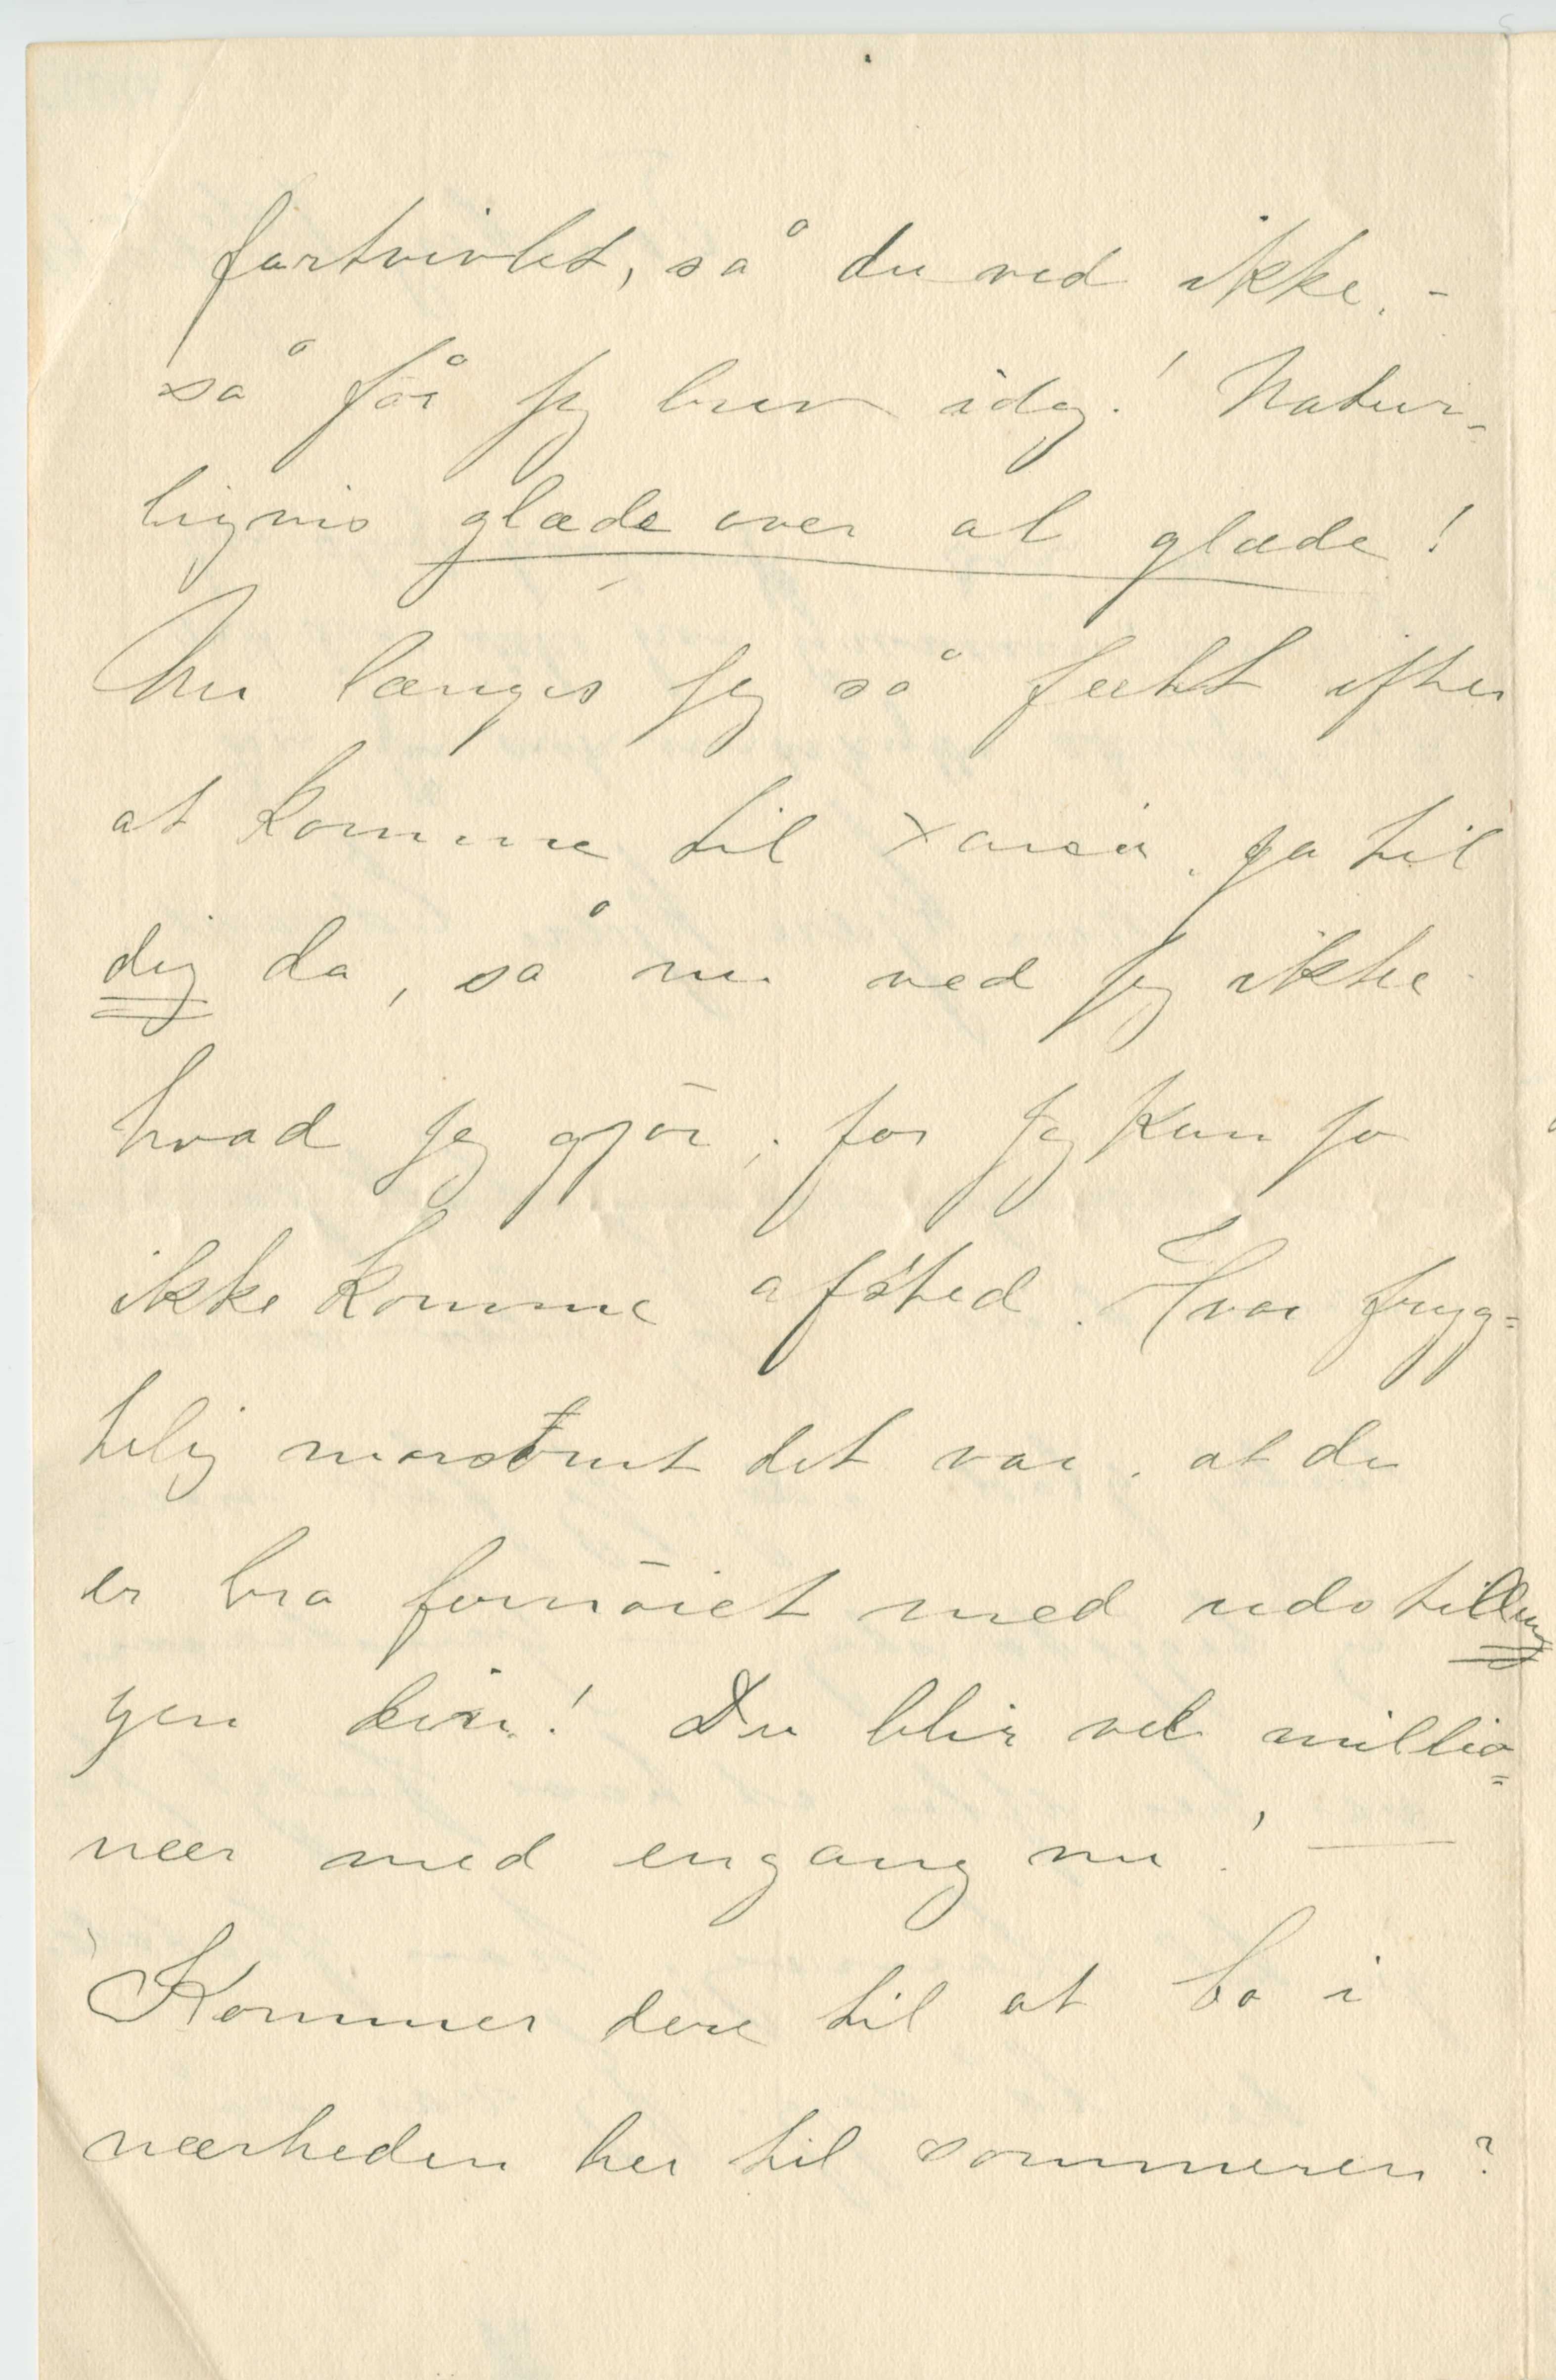 fortvivlet, så du ved ikke. -
så får jeg brev idag! Natur-
ligvis glæde over al glæde!
Nu længes jeg så fælt efter
at komme til Xania. ja til
dig da, så nu ved jeg ikke
hvad jeg gjør, for jeg kan jo
ikke komme afsted. Hvor fryg=
telig morsomt det var, at du
er bra fornøiet med udstilling
gen din! Du blir vel millio=
neer med engang nu! —
Kommer dere til at bo i
nærheden her til sommeren?